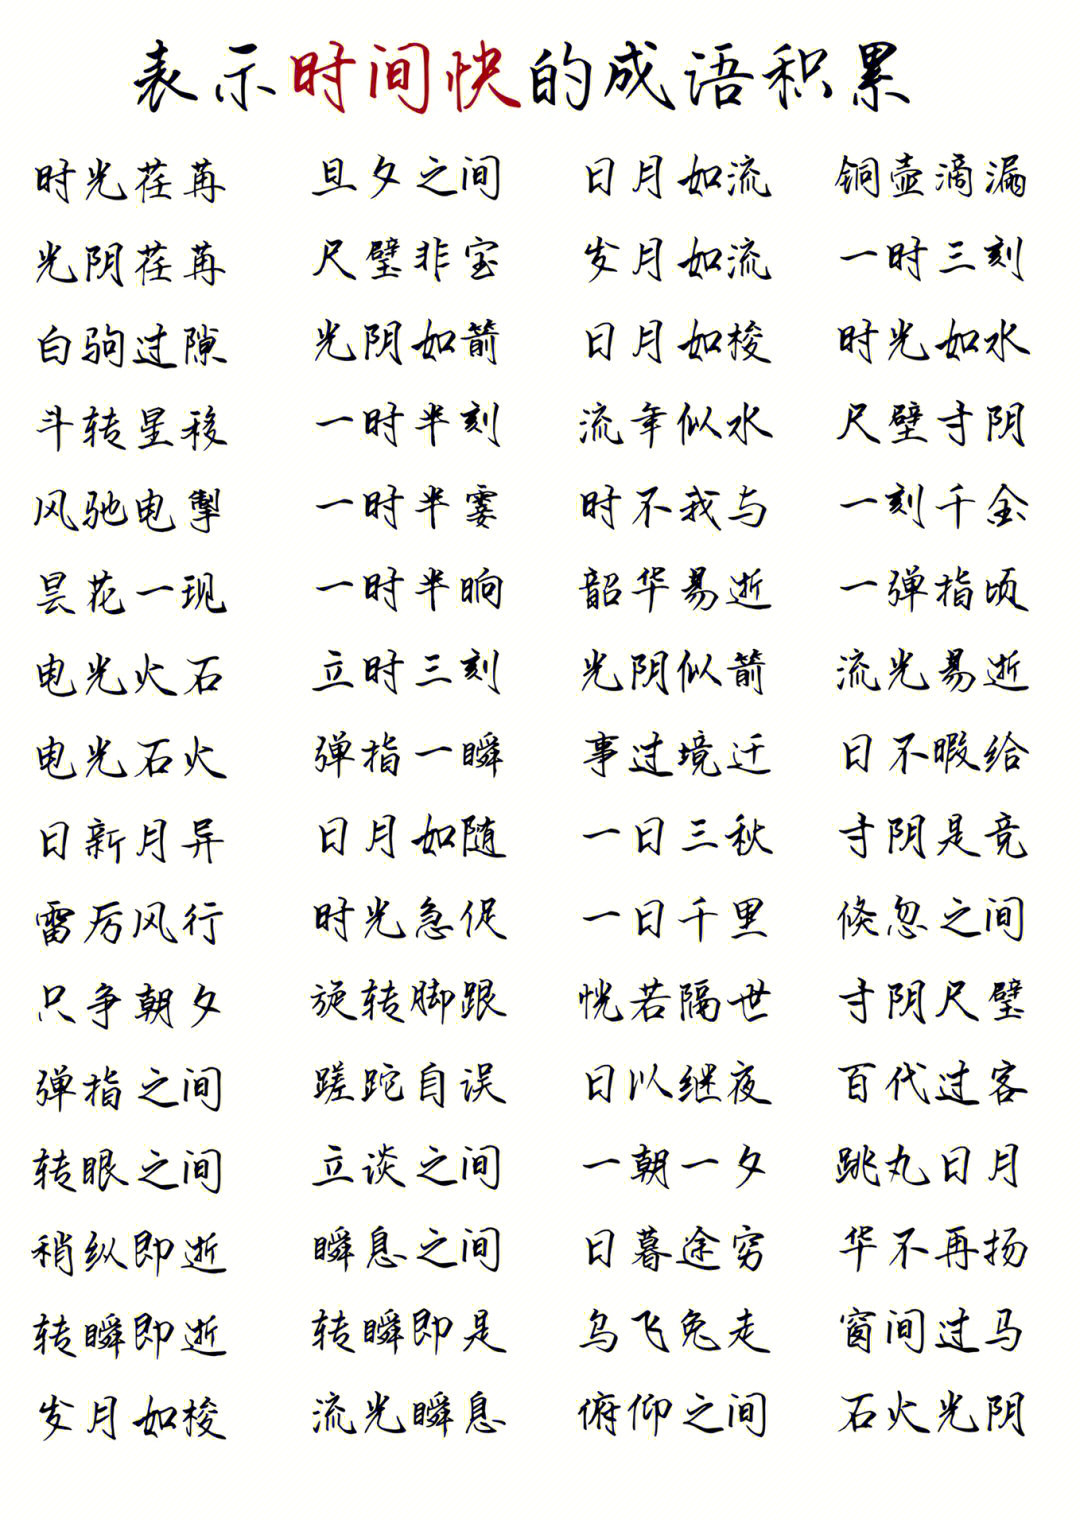 表示时间快的成语积累
时光荏苒 旦夕之间 日月如流 铜壶滴漏
光阴荏苒 尺璧非宝 岁月如流 一时三刻
白驹过隙 光阴如箭 日月如梭 时光如水
斗转星移 一时半刻 流年似水 尺璧寸阴
风驰电掣 一时半霎 时不我与 一刻千金
昙花一现 一时半晌 韶华易逝 一弹指顷
电光火石 立时三刻 光阴似箭 流光易逝
电光石火 弹指一瞬 事过境迁 日不暇给
日新月异 日月如随 一日三秋 寸阴是竞
雷厉风行 时光急促 一日千里 倏忽之间
只争朝夕 旋转脚跟 恍若隔世 寸阴尺璧
弹指之间 蹉跎自误 日以继夜 百代过客
转眼之间 立谈之间 一朝一夕 跳丸日月
稍纵即逝 瞬息之间 日暮途穷 华不再扬
转瞬即逝 转瞬即是 乌飞兔走 窗间过马
岁月如梭 流光瞬息 俯仰之间 石火光阴